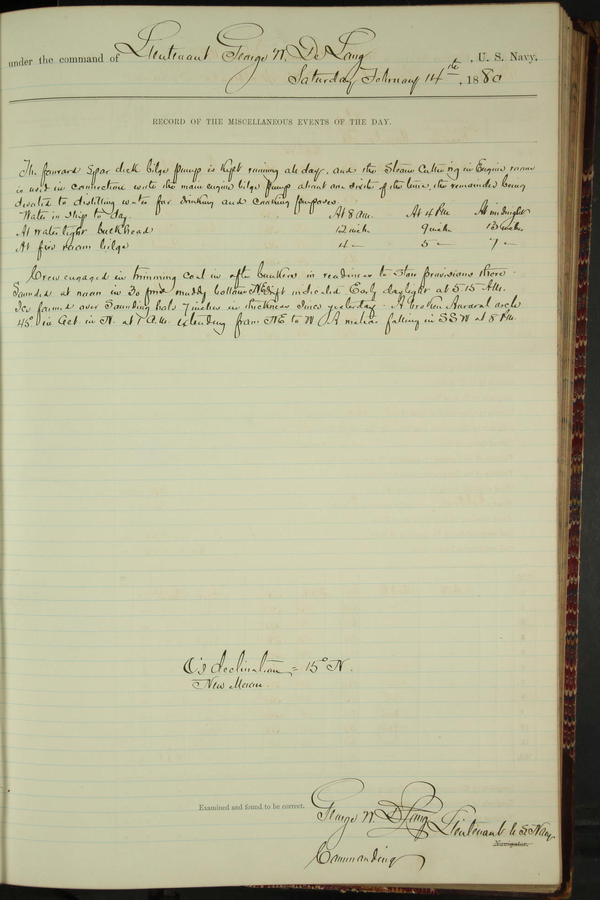 under the command of Lieutenant George W. De Long, U. S. Navy.
Saturday February 14th, 1880
RECORD OF THE MISCELLANEOUS EVENTS OF THE DAY.
The forward Spar deck bilge pump is kept running all day, and the Steam Cutter's in Engine room
is used in connection with the main engine bilge pump about one of the time, the remainder being
devoted to distilling water for drinking and cooking purposes.
Water in Ship to day At 8 am. At 4 PM At midnight
At water tight buckhead 12 inch 9 inch 13 inch
At fire room bilge 4 - 5 - 7 -
Crew engaged in trimming coal in after bunkers in readiness to Stow provisions there.
Sounded at noon in 30 fms muddy bottom drift indicated Early daylight at 5.15 AM.
Ice formed over Sounding hole 7 inches in thickness Since yesterday. A broken Auroral arch
45° in in N. at 7 A.M. extending from NE to W A meteor falling in SSW at 8 PM.
☾'s declination = 15° N.
New Moon.
Examined and found to be correct.
George W. De Long Lieutenant U. S. Navy
Navigator.
Commanding